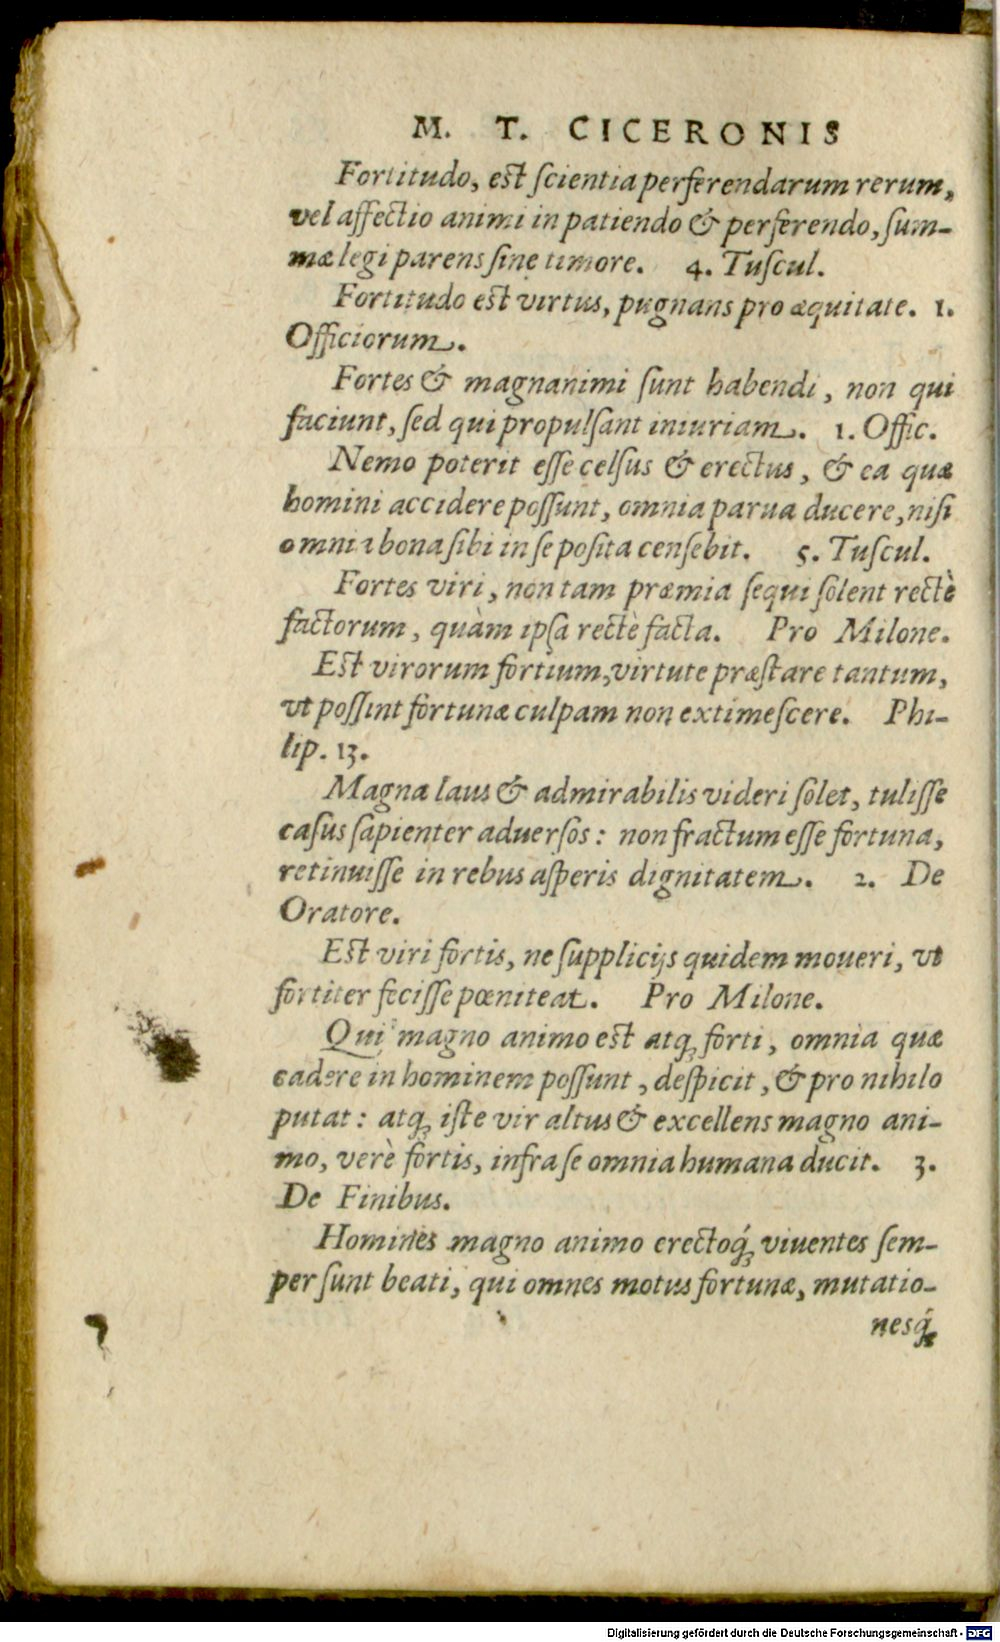 M. T. CICERONIS
Fortitudo, est ſcientia perferendarum rerum,
vel affectio animi in patiendo & perferendo, ſum-
mæ legi parens ſine timore. 4. Tuſcul.
Fortitudo est virtus, pugnans pro æquitate. 1.
Officiorum.
Fortes & magnanimi ſunt habendi, non qui
faciunt, ſed qui propulſant iniuriam. 1. Offic.
Nemo poterit eſſe celſus & erectus, & ea quæ
homini accidere poſſunt, omnia parua ducere, niſi
omnia bona ſibi in ſe poſita cenſebit. 5. Tuſcul.
Fortes viri, non tam præmia ſequi ſolent rectè
factorum, quàm ipſa rectè facta. Pro Milone.
Est virorum fortium, virtute præſtare tantum,
vt poſſint fortunæ culpam non extimeſcere. Phi-
lip. 13.
Magna laus & admirabilis videri ſolet, tuliſſe
caſus ſapienter aduerſos: non fractum eſſe fortuna,
retinuiſſe in rebus aſperis dignitatem. 2. De
Oratore.
Est viri fortis, ne ſupplicijs quidem moueri, vt
fortiter feciſſe pœniteat. Pro Milone.
Qui magno animo est atq; forti, omnia quæ
cadere in hominem poſſunt, deſpicit, & pro nihilo
putat: atq; iſte vir altus & excellens magno ani-
mo, verè fortis, infra ſe omnia humana ducit. 3.
De Finibus.
Homines magno animo erectoq́; viuentes ſem-
per ſunt beati, qui omnes motus fortunæ, mutatio-
nesq́;
Digitalisierung gefördert durch die Deutsche Forschungsgemeinschaft - DFG